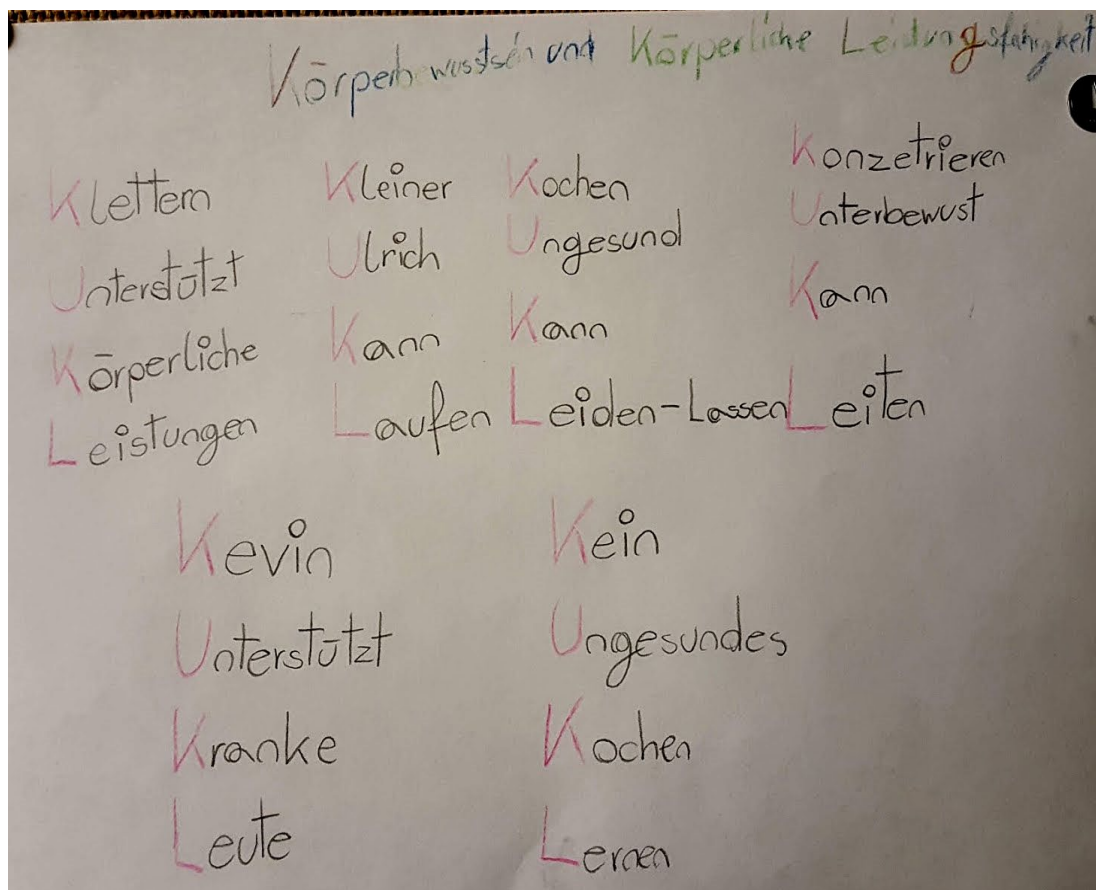 Körperbewusstsein und Körperliche Leistungsfähigkeit
Klettern
Unterstützt
Körperliche
Leistungen
Kleiner
Ulrich
Kann
Laufen
Kochen
Ungesund
Kann
Leiden-Lassen
Konzetrieren
Unterbewust
Kann
Leiten
Kevin
Unterstützt
Kranke
Leute
Kein
Ungesundes
Kochen
Lernen